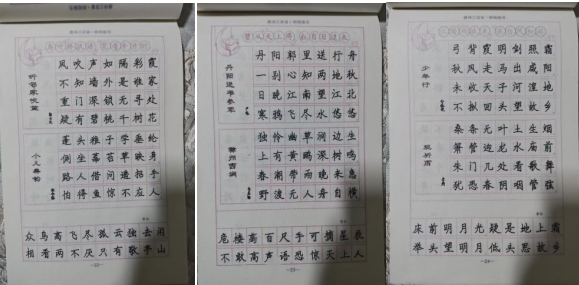 听邻家吹笙
凤吹声如隔彩霞
不知墙外是谁家
重门深锁无寻处
疑有碧桃千树花
小儿垂钓
蓬头稚子学垂纶
侧坐莓苔草映身
路人借问遥招手
怕得鱼惊不应人
众鸟高飞尽孤云独去闲
相看两不厌只有敬亭山
丹阳送韦参军
丹阳郭里送行舟
一别心知两地秋
日晚江南望江北
寒鸦飞尽水悠悠
滁州西涧
独怜幽草涧边生
上有黄鹂深树鸣
春潮带雨晚来急
野渡无人舟自横
危楼高百尺手可摘星辰
不敢高声语恐惊天上人
—23—
少年行
弓背霞明剑照霜
秋风走马出咸阳
未收天子河湟地
不拟回头望故乡
观祈雨
桑条无叶土生烟
箫管迎龙水庙前
朱门几处看歌舞
犹恐春阴咽管弦
床前明月光疑是地上霜
举头望明月低头思故乡
—24—